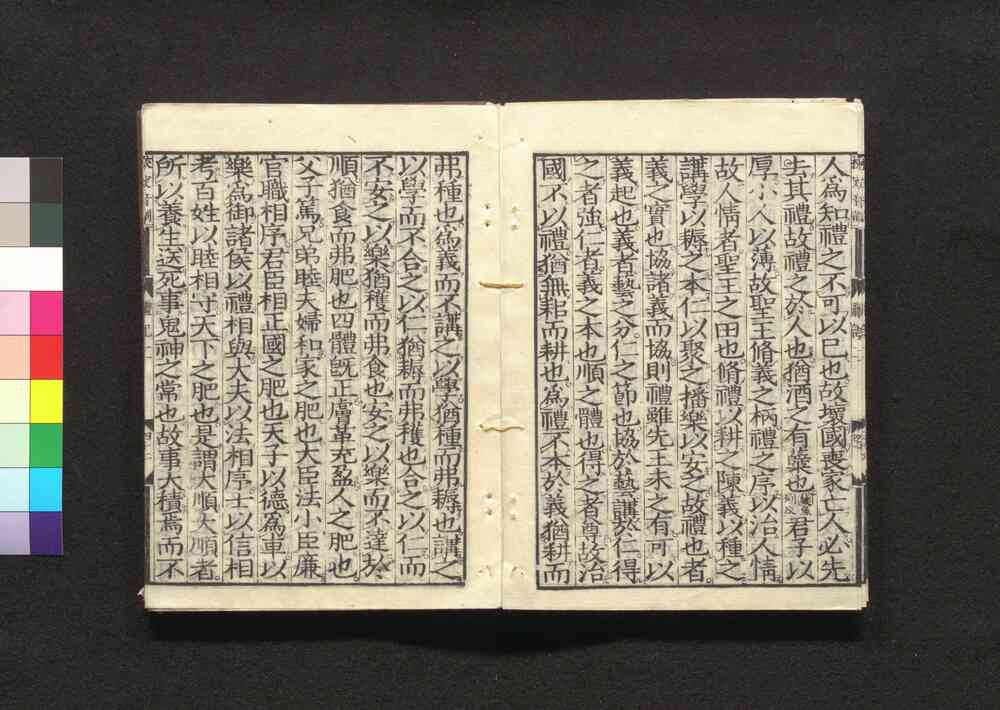 人爲知禮之不可以已也故壞國喪家亡人必先
去其禮故禮之於人也猶酒之有蘖也君子以
厚小人以薄故聖王脩義之柄禮之序以治人情
故人情者聖王之田也脩禮以耕之陳義以種之
講學以耨之本仁以聚之播樂以安之故禮也者
義之實也協諸義而協則禮雖先王未之有可以
義起也義者藝之分仁之節也協於藝講於仁得
之者強仁者義之本也順之體也得之者尊故治
國不以禮猶無耜而耕也爲禮不本於義猶耕而
弗種也爲義而不講之以學猶種而弗耨也講之
以學而不合之以仁猶耨而弗穫也合之以仁而
不安之以樂猶穫而弗食也安之以樂而不達於
順猶食而弗肥也四體旣正膚革充盈人之肥也
父子篤兄弟睦夫婦和家之肥也大臣法小臣廉
官職相序君臣相正國之肥也天子以德爲車以
樂爲御諸侯以禮相與大夫以法相序士以信相
考百姓以睦相守天下之肥也是謂大順大順者
所以養生送死事鬼神之常也故事大積焉而不